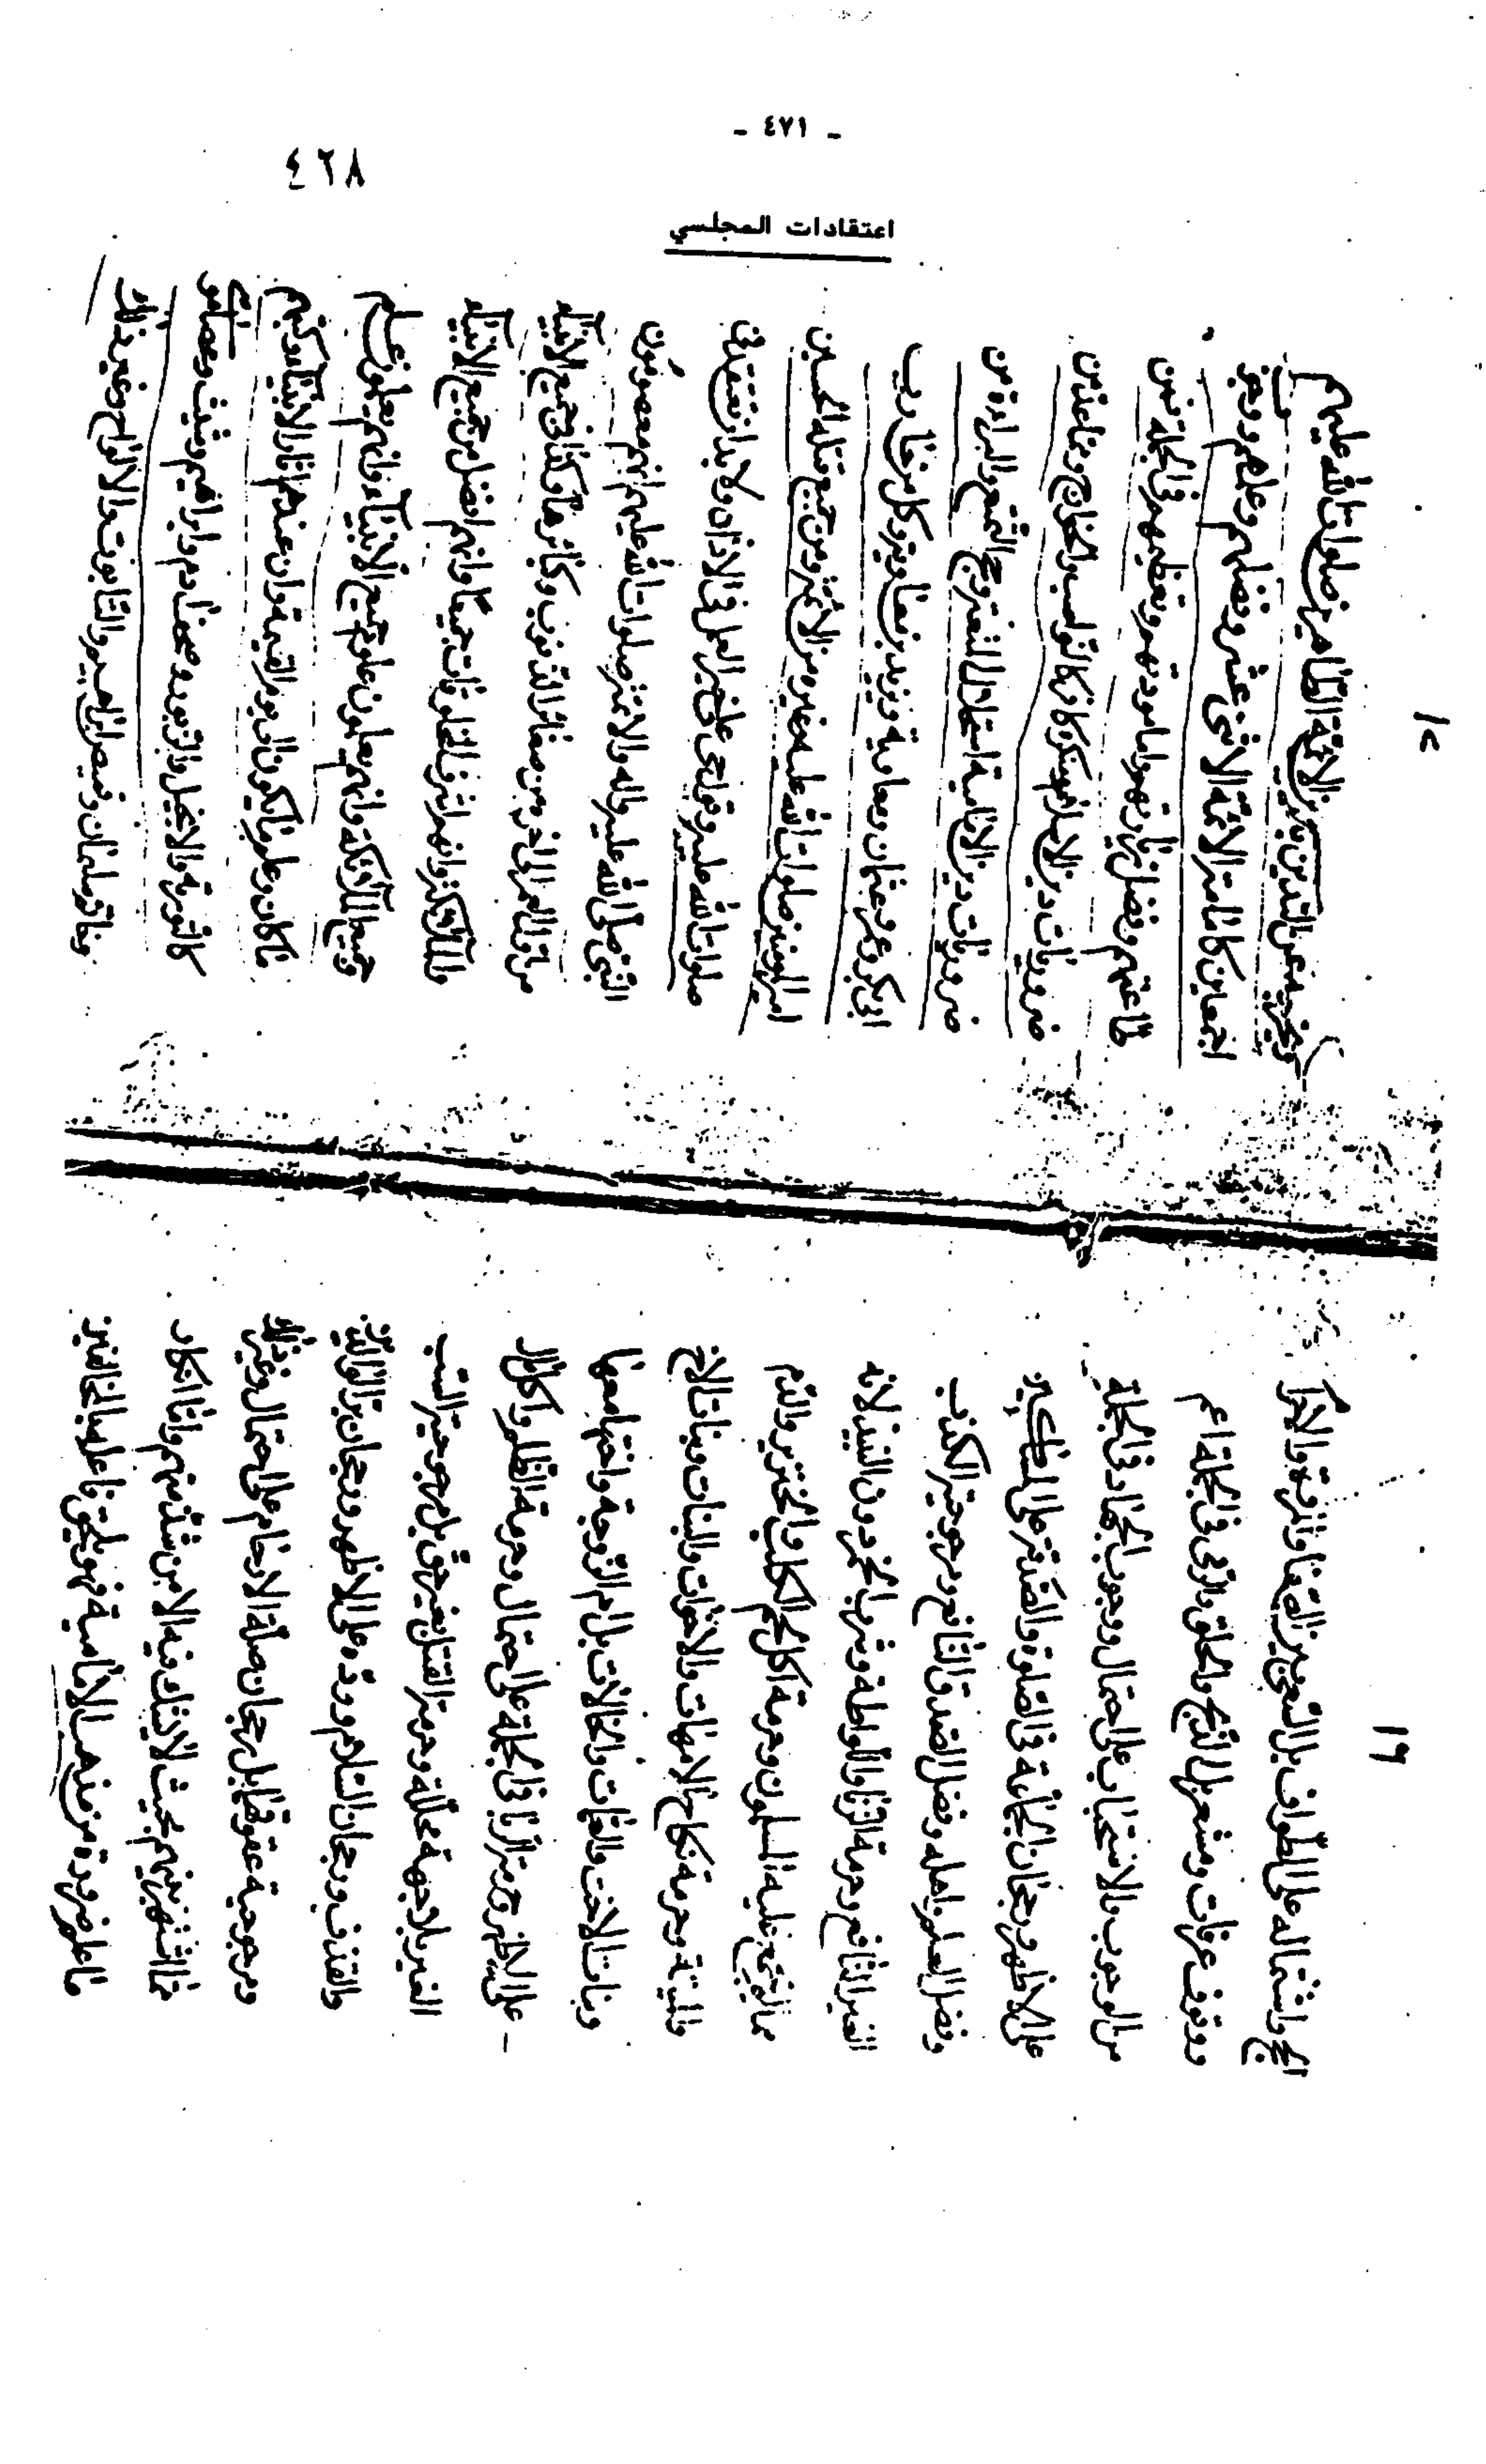 - ٤٧١ -
٤٢٨
اعتقادات المجلسي
١٦
الحج واشتماله على الطواف بل السعي بين الصفا والمروة والاحرام
ووقوف عرفات ومشعر بل الذبح والحلق والرمي في الجملة اعم
من الوجوب والاستحباب على احتمال ووجوب الجهاد في الجملة
على الاظهر ورجحان الجماعة في الصلوة والصدقة على المساكين
وفضل العلم واهله وفضل الصدق النافع ومرجوحية الكذب
الغير النافع وحرمة الزنا واللواطة وشرب الخمر دون النبيذ لانه
مما لم يجمع عليه المسلمون وحرمة اكل لحم الكلب والخنزير والدم
والميتة وحرمة نكاح الامهات والاخوات والبنات وبنات الاخ
وبنات الاخت والعمات والخالات بل ام الزوجة واختها معها
على الاظهر وحرمة الربا في الجملة على احتمال وحرمة الظلم واكل مال
الغير بلا جهة محللة وحرمة القتل بغير حق بل مرجوحية السب
والقذف ورجحان السلام ورده على الاظهر ورجحان بر الوالدين
ومرجوحية عقوقهما بل رجحان صلة الارحام على احتمال وغير ذلك
مما اشتهر بينهم بحيث لا يشك فيه الا من شذ منهم واما انكار
ما علم ضرورة من مذهب الامامية فهو يلحق فاعله بالمخالفين
١٥
ويخرجه عن التدين بدين الائمة الطاهرين صلوات الله عليهم
اجمعين كامامة الائمة الاثنى عشر وفضلهم وعلمهم ووجوب
طاعتهم وفضل زيارتهم واما مودتهم وتعظيمهم في الجملة فمن
ضروريات دين الاسلام ومنكره كافر كالنواصب والخوارج ومما عد من
ضروريات دين الامامية استحلال المتعة وحج التمتع والبراءة من
ابي بكر وعمر وعثمان ومعاوية ويزيد بن معاوية وكل من حارب
امير المؤمنين صلوات الله عليه وغيره من الائمة ومن جميع قتلة الحسين
صلوات الله عليه وقول حي على خير العمل في الاذان ولا بد ان تعتقد في
النبي صلى الله عليه وآله والائمة صلوات الله عليهم انهم معصومون
من اول العمر الى اخره من صغائر الذنوب وكبائرها وكذا في جميع الانبياء
والملائكة وانهم اشرف المخلوقات جميعا وانهم افضل من جميع الانبياء
وجميع الملائكة وانهم يعلمون علوم جميع الانبياء وانهم يعلمون علم
ما كان وعلم ما يكون الى يوم القيمة وان عندهم اثار الانبياء وكتبهم
كالتورية والانجيل والزبور وصحف ادم وابراهيم وشيث وعصا موسى
وخاتم سليمان وقميص ابراهيم والتابوت والالواح وغير ذلك